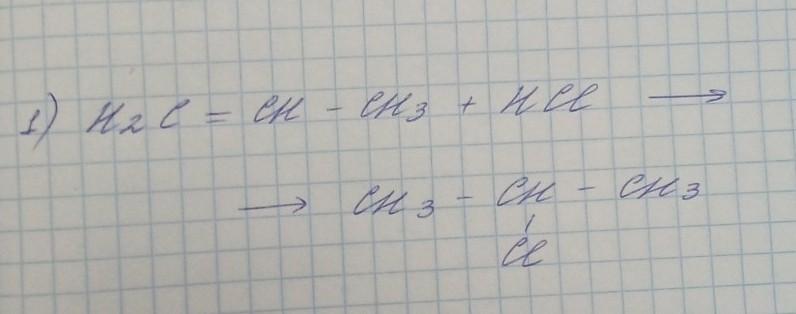 1) H2C = CH - CH3 + HCl →
→ CH3 - CH - CH3
Cl